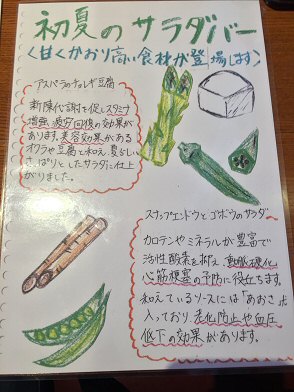 初夏のサラダバー
〈甘くかおり高い食材が登場します〉
アスパラのチョレギ豆腐
新陳代謝を促しスタミナ
増強、疲労回復の効果が
あります。美容効果がある
オクラや豆腐と和え、夏らしい
さっぱりとしたサラダに仕上
がりました。
スナップエンドウとゴボウのサラダ
カロテンやミネラルが豊富で
活性酸素を抑え、動脈硬化、
心筋梗塞の予防に役立ちます。
和えているソースには「あおさ」が
入っており、老化防止や血圧
低下の効果があります。